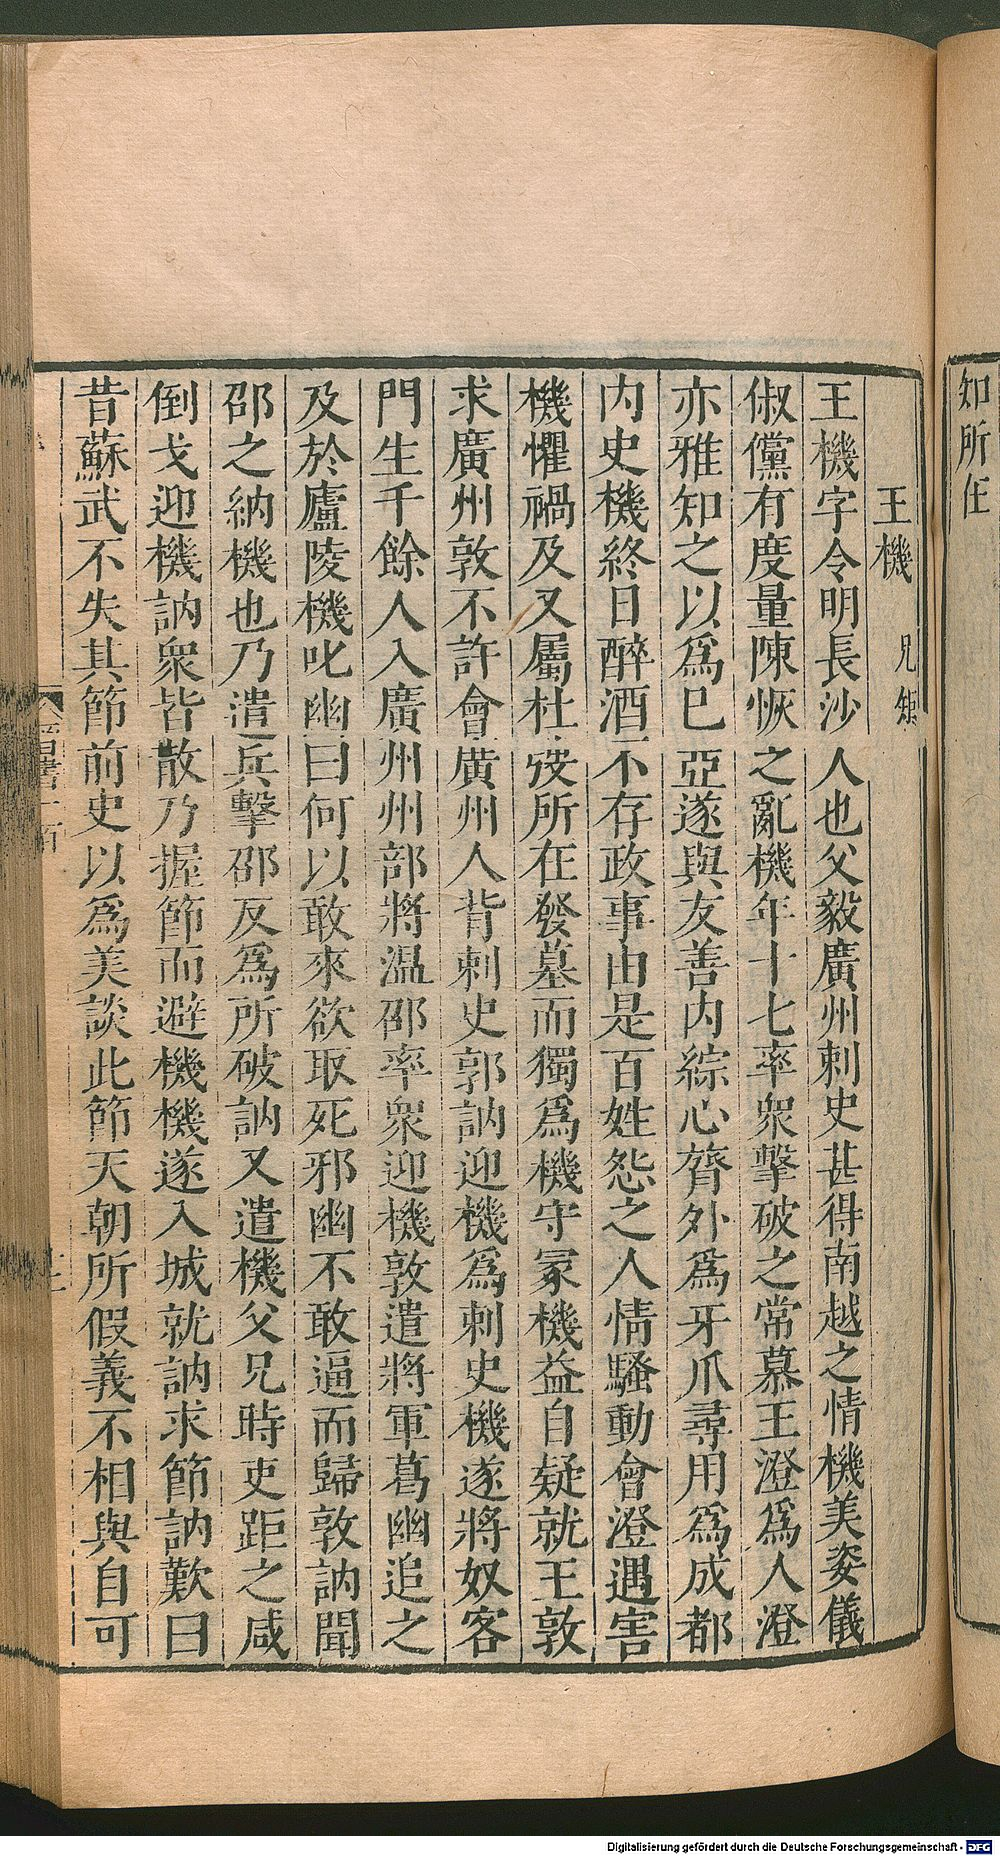 知所在
王機 兄矩
王機字令明長沙人也父毅廣州刺史甚得南越之情機美姿儀
俶儻有度量陳恢之亂機年十七率衆擊破之常慕王澄爲人澄
亦雅知之以爲已亞遂與友善内綜心膂外爲牙爪尋用爲成都
内史機終日醉酒不存政事由是百姓怨之人情騷動會澄遇害
機懼禍及又屬杜弢所在發墓而獨爲機守冢機益自疑就王敦
求廣州敦不許會廣州人背刺史郭訥迎機爲刺史機遂將奴客
門生千餘人入廣州州部將溫邵率衆迎機敦遣將軍葛幽追之
及於廬陵機叱幽曰何以敢來欲取死邪幽不敢逼而歸敦訥聞
邵之納機也乃遣兵擊邵反爲所破訥又遣機父兄時吏距之咸
倒戈迎機訥衆皆散乃握節而避機機遂入城就訥求節訥歎曰
昔蘇武不失其節前史以爲美談此節天朝所假義不相與自可
Digitalisierung gefördert durch die Deutsche Forschungsgemeinschaft - DFG